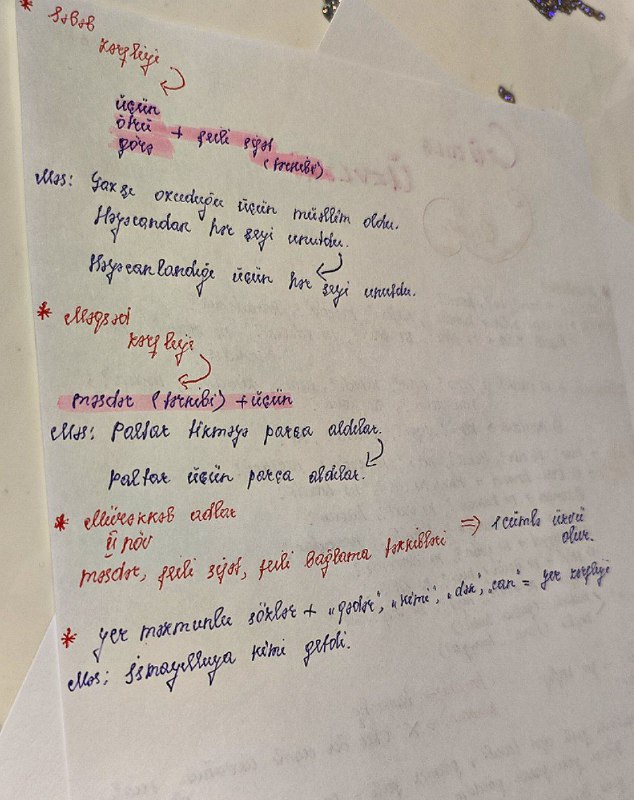 * Səbəb
zərfliyi
üçün
ötrü
görə
+ feili sifət
(tərkibi)
Məs: Yaxşı oxuduğu üçün müəllim oldu.
Həyəcandan hər şeyi unutdu.
Həyəcanlandığı üçün hər şeyi unutdu.
* Məqsəd
zərfliyi
məsdər (tərkibi) + üçün
Məs: Paltar tikməyə parça aldılar.
Paltar üçün parça aldılar.
* Mürəkkəb adlar
II növ
məsdər, feili sifət, feili bağlama tərkibləri => 1 cümlə üzvü
olur.
* Yer məzmunlu sözlər + "qədər", "kimi", "dək", "can" = yer zərfliyi
Məs: İsmayıllıya kimi getdi.